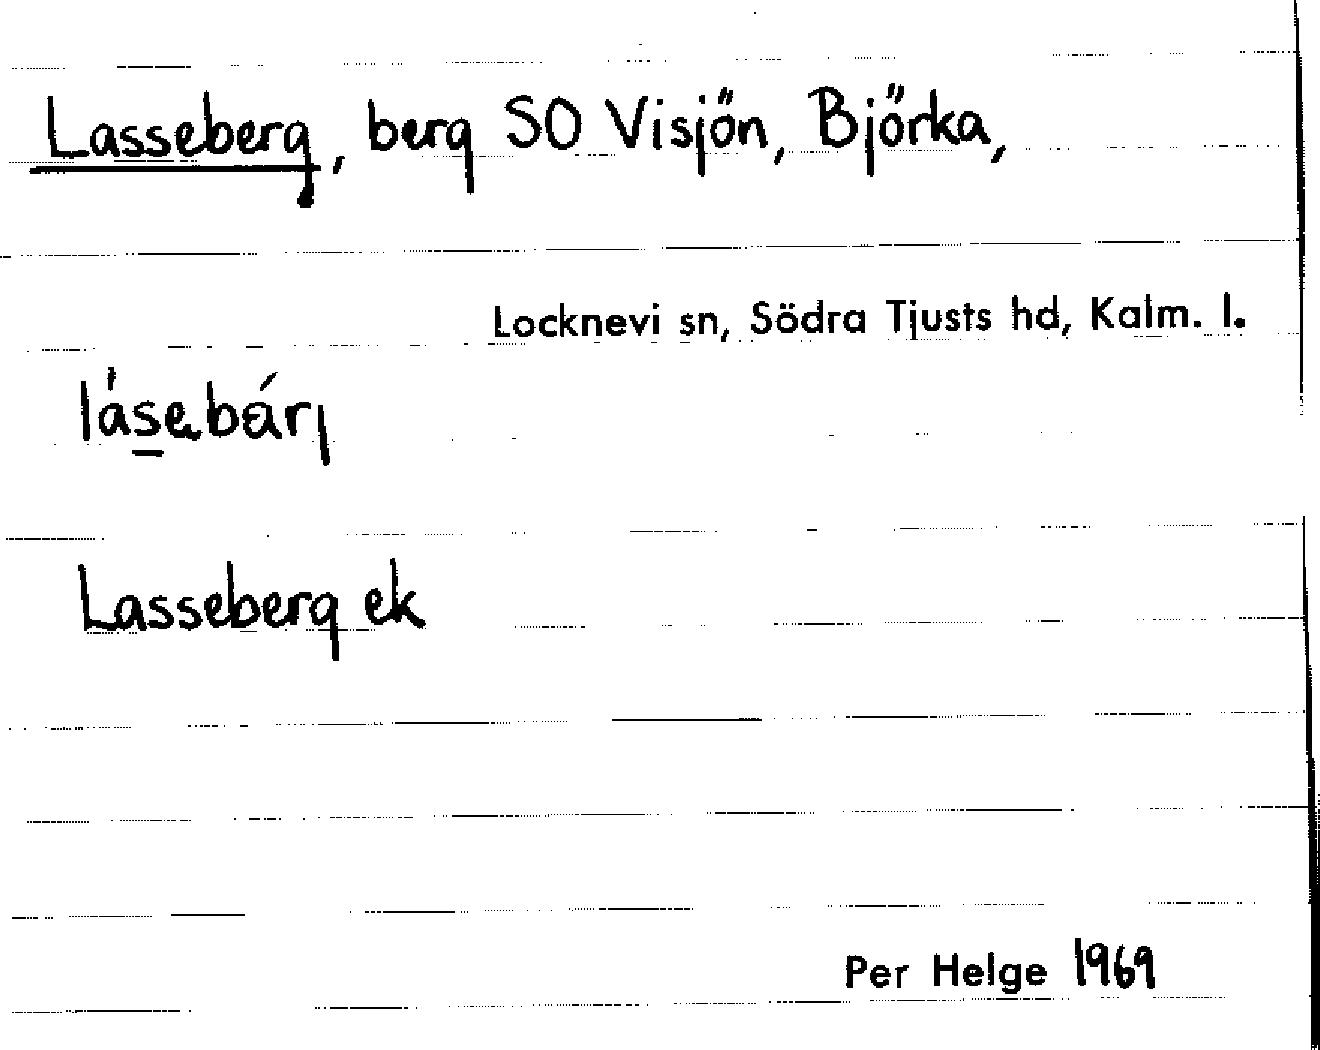 Lasseberg, berg SO Visjön, Björka,
Locknevi sn, Södra Tjusts hd, Kalm. l.
Lasseberg ek
Per Helge 1969